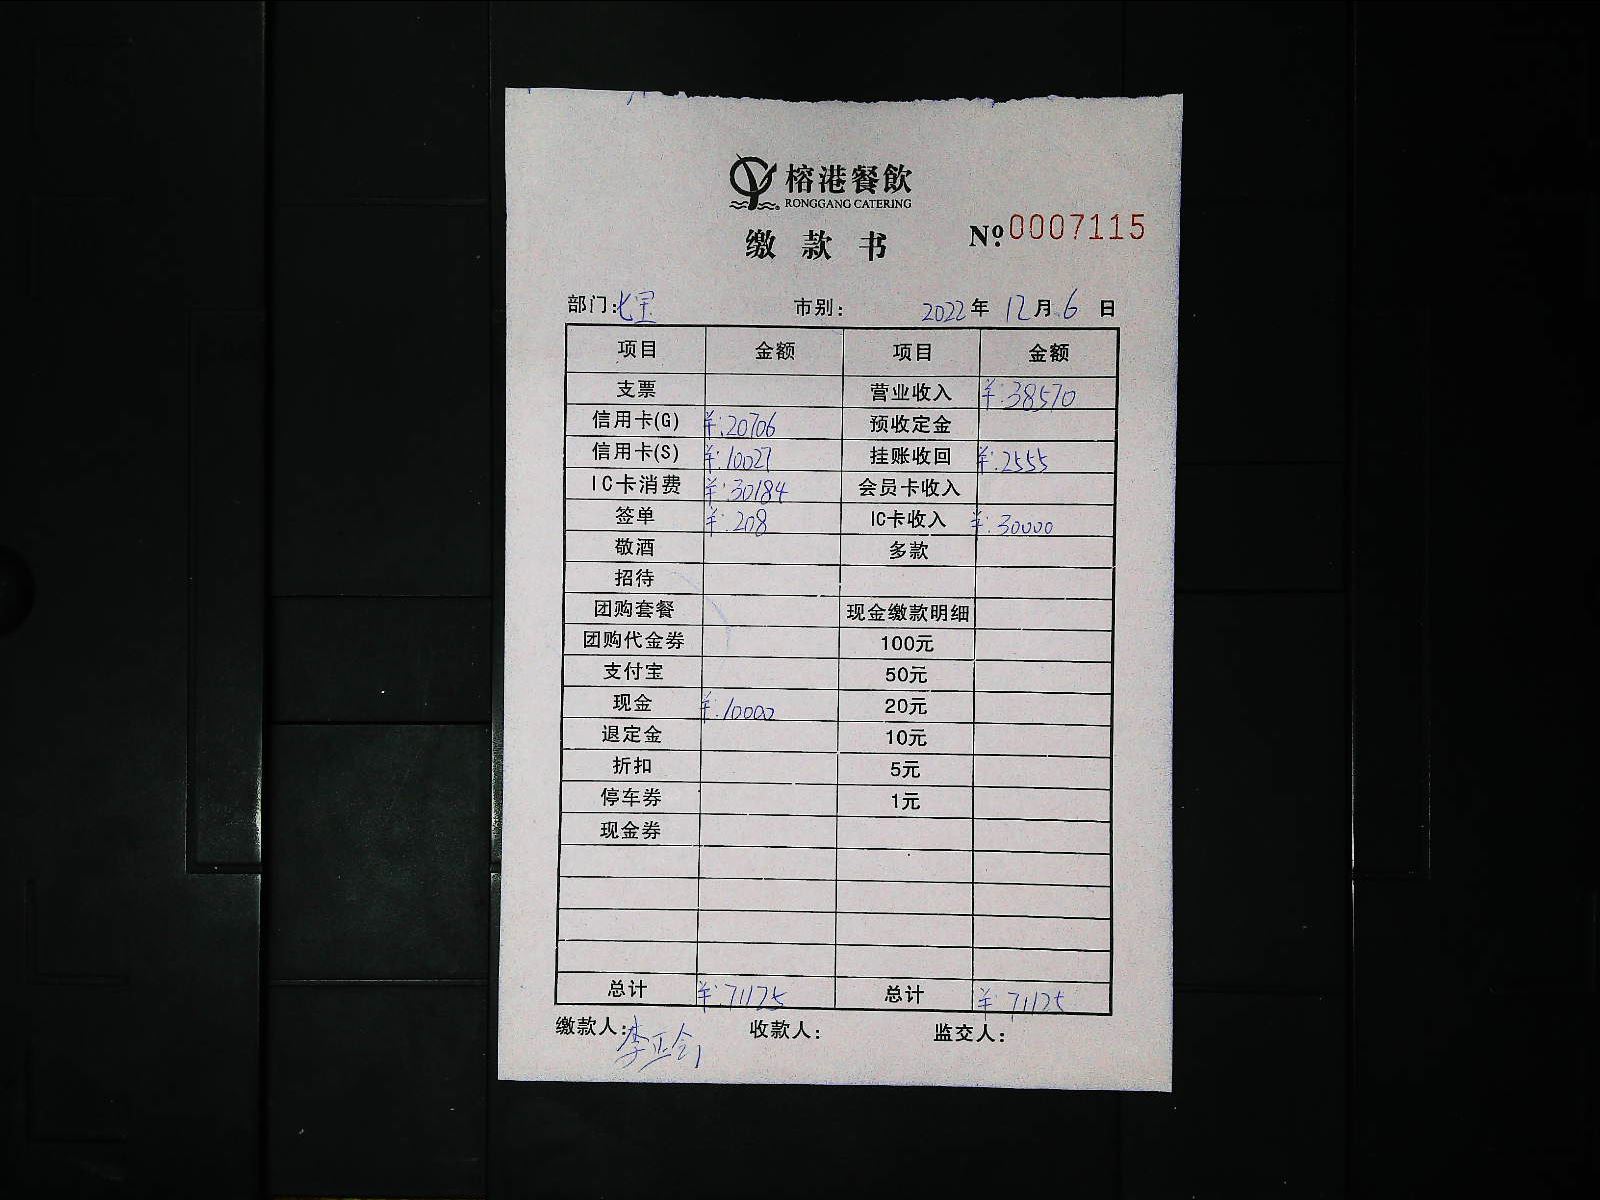 榕港餐飲
RONGGANG CATERING
缴款书 №0007115
部门:七宝 市别: 2022年12月6日
项目 金额 项目 金额
支票 营业收入 ¥:38570
信用卡(G) ¥:20706 预收定金
信用卡(S) ¥:10027 挂账收回 ¥:2555
IC卡消费 ¥:30184 会员卡收入
签单 ¥:208 IC卡收入 ¥:30000
敬酒 多款
招待
团购套餐 现金缴款明细
团购代金券 100元
支付宝 50元
现金 ¥:10000 20元
退定金 10元
折扣 5元
停车券 1元
现金券
总计 ¥:71125 总计 ¥:71125
缴款人: 收款人: 监交人: